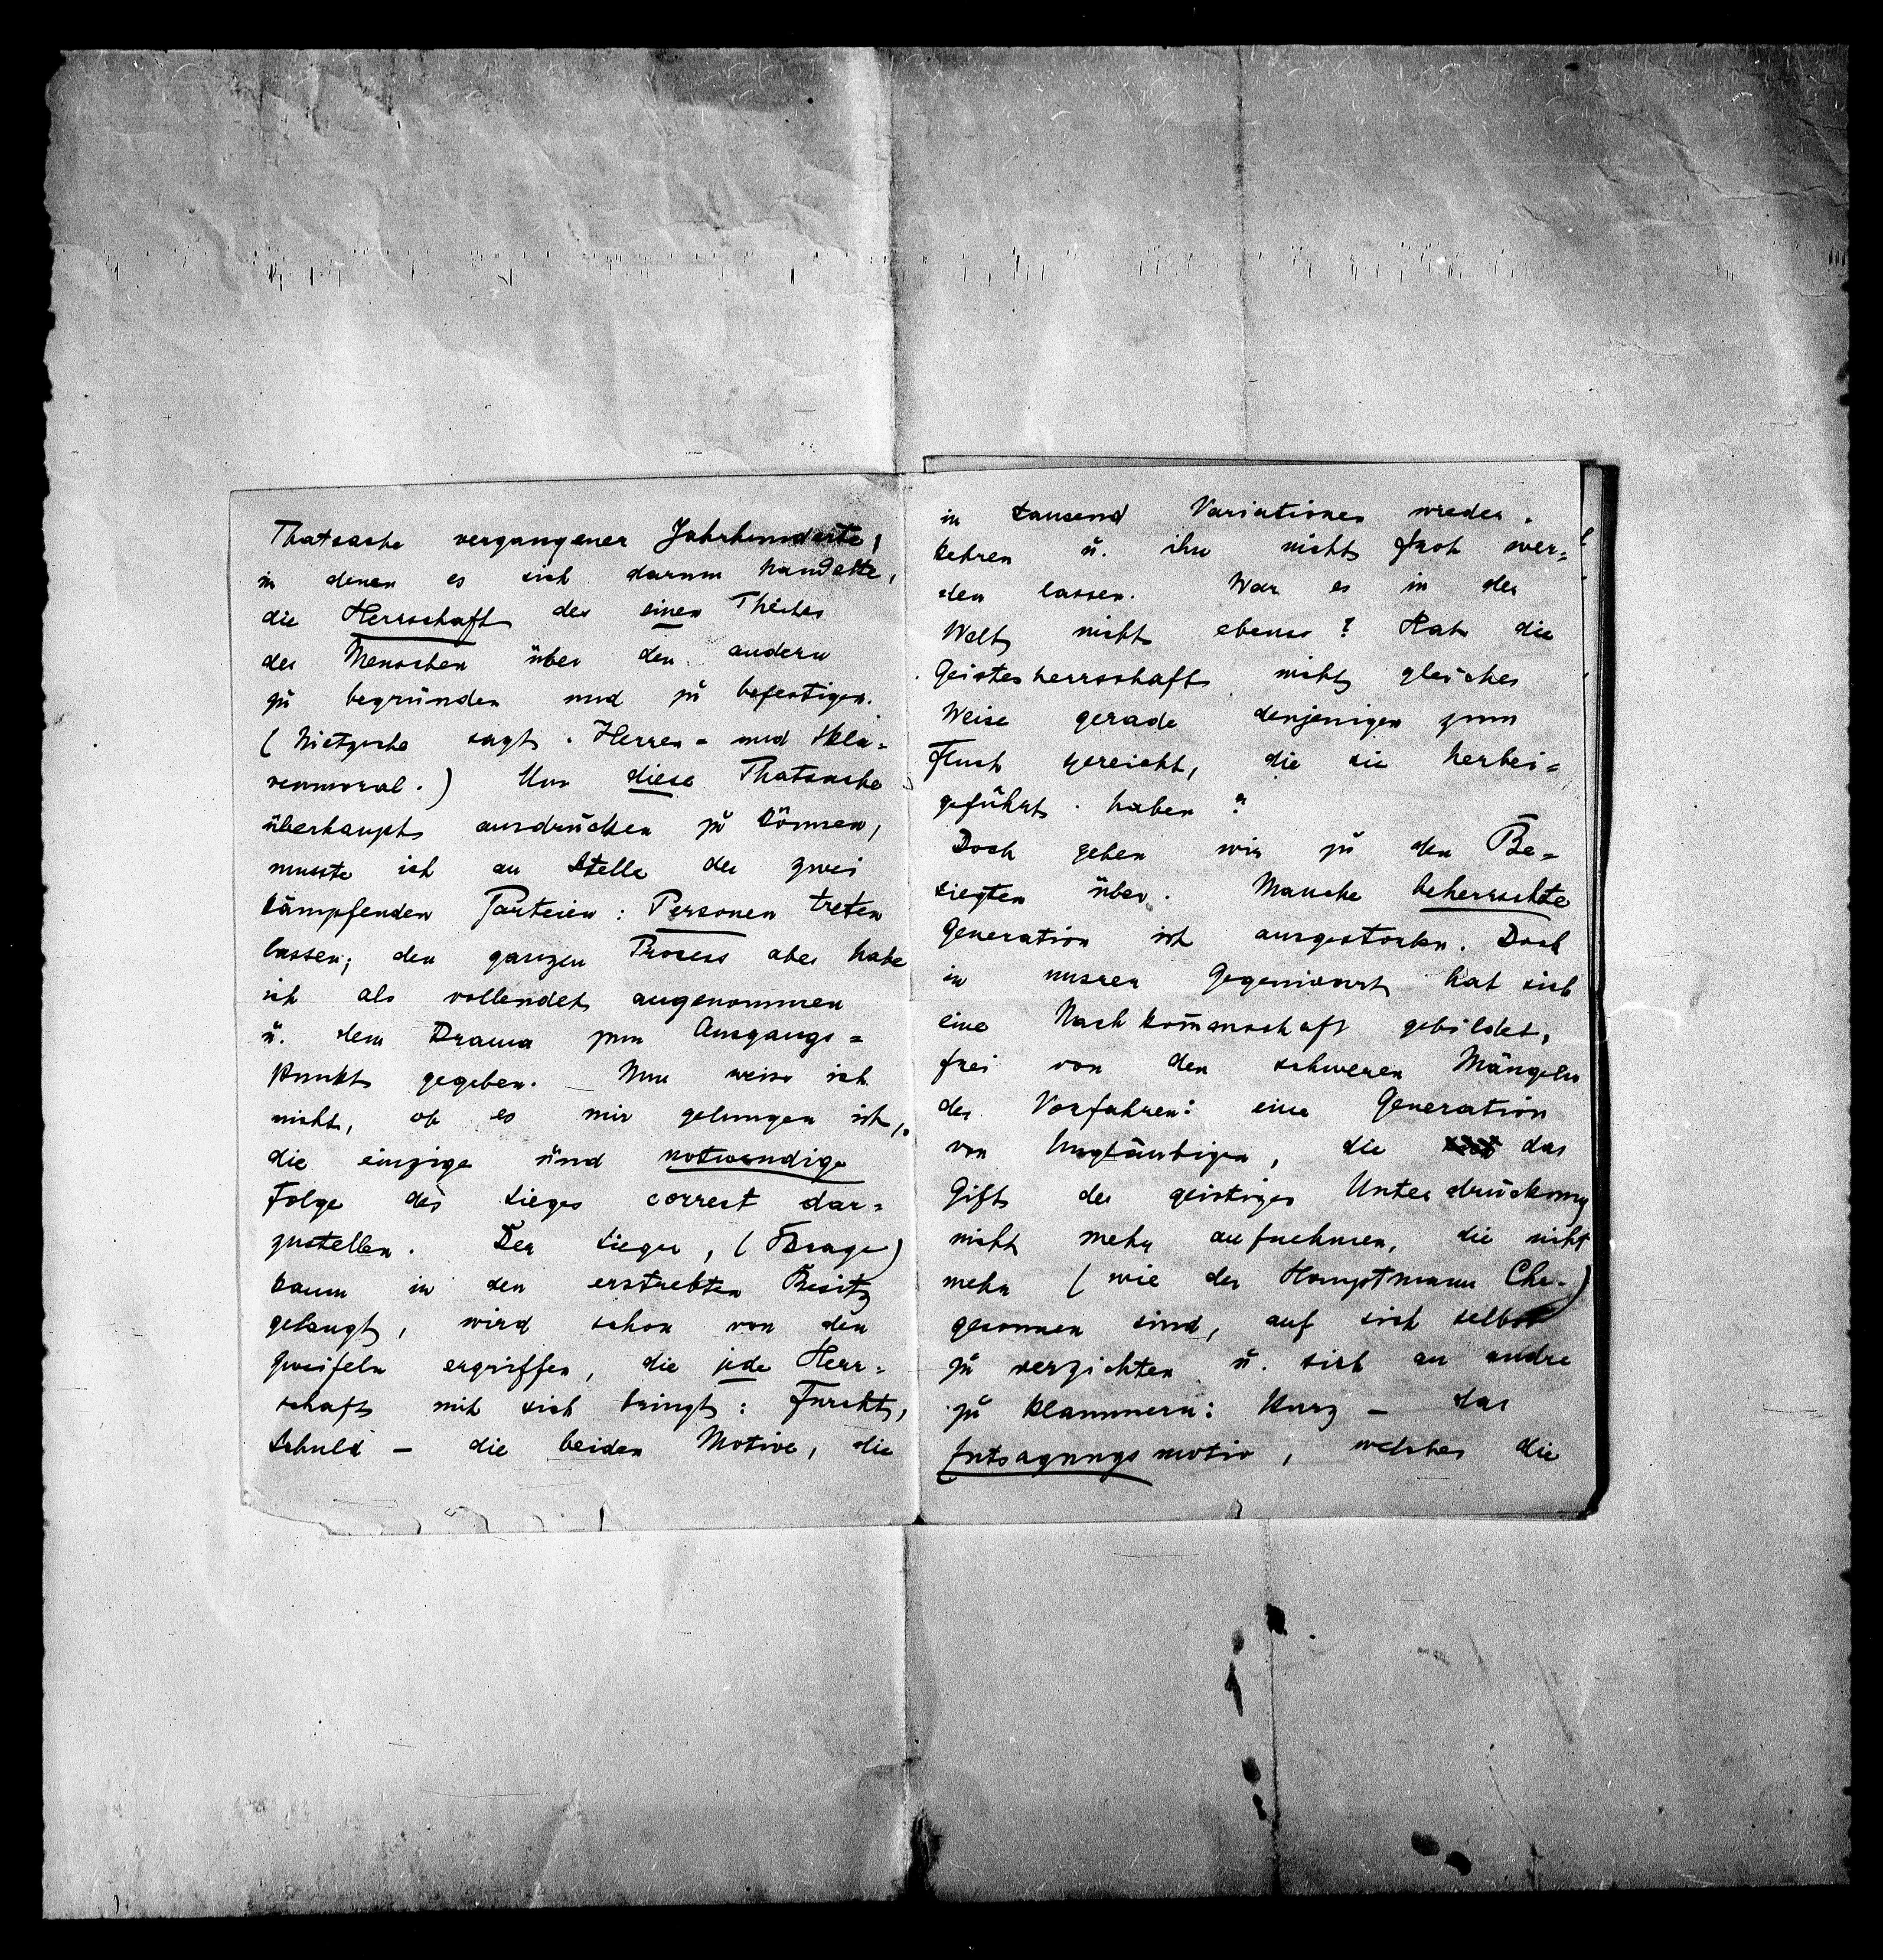 Thatsache vergangener Jahrhunderte,
in denen es sich darum handelte,
die Herrschaft des einen Theiles
der Menschen über den andern
zu begründen und zu befestigen.
(Nietzsche sagt. Herren= und Skla=
venmoral.) Um diese Thatsache
überhaupt ausdrücken zu können,
musste ich an Stelle der zwei
kämpfenden Parteien: Personen treten
lassen; den ganzen Prozess aber habe
ich als vollendet angenommen
u. dem Drama zum Ausgangs=
punkt gegeben. Nun weiss ich
nicht, ob es mir gelungen ist,
die einzige und notwendige
Folge des Sieges correct dar=
zustellen. Der Sieger, (Brage)
kaum in den erstrebten Besitz
gelangt, wird schon von den
Zweifeln ergriffen, die jede Herr=
schaft mit sich bringt: Furcht,
Schuld – die beiden Motive, die
in tausend Variationen wieder.
kehren u. ihn nicht froh wer=
den lassen. War es in der
Welt nicht ebenso? Hat die
Geistesherrschaft nicht gleicher
Weise gerade denjenigen zum
Fluch gereicht, die sie herbei=
geführt haben?
Doch gehen wir zu den Be=
siegten über. Manche beherrschte
Generation ist ausgestorben. Doch
in unsrer Gegenwart hat sich
eine Nachkom̄enschaft gebildet,
frei von den schweren Mängeln
der Vorfahren: eine Generation
von Ungläubigen, die das
Gift der geistigen Unterdrückung
nicht mehr aufnehmen, die nicht
mehr (wie der Hauptmann Che-)
gesonnen sind, auf sich selbst
zu verzichten u. sich an andre
zu klammern: Kurz – das
Entsagungsmotiv, welches die